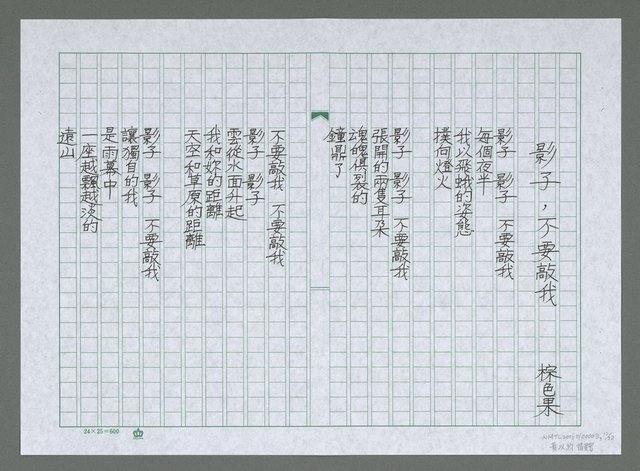 影子，不要敲我
棕色果
影子　影子　不要敲我
每個夜半
我以飛蛾的姿態
撲向燈火
影子　影子　不要敲我
張開的兩隻耳朵
魂魄俱裂的
鐘鼎了
不要敲我　不要敲我
影子　影子
雲從水面升起
我和妳的距離
天空和草原的距離
影子　影子　不要敲我
讓獨自的我
是雨幕中
一座越飄越淡的
遠山
24×25=600